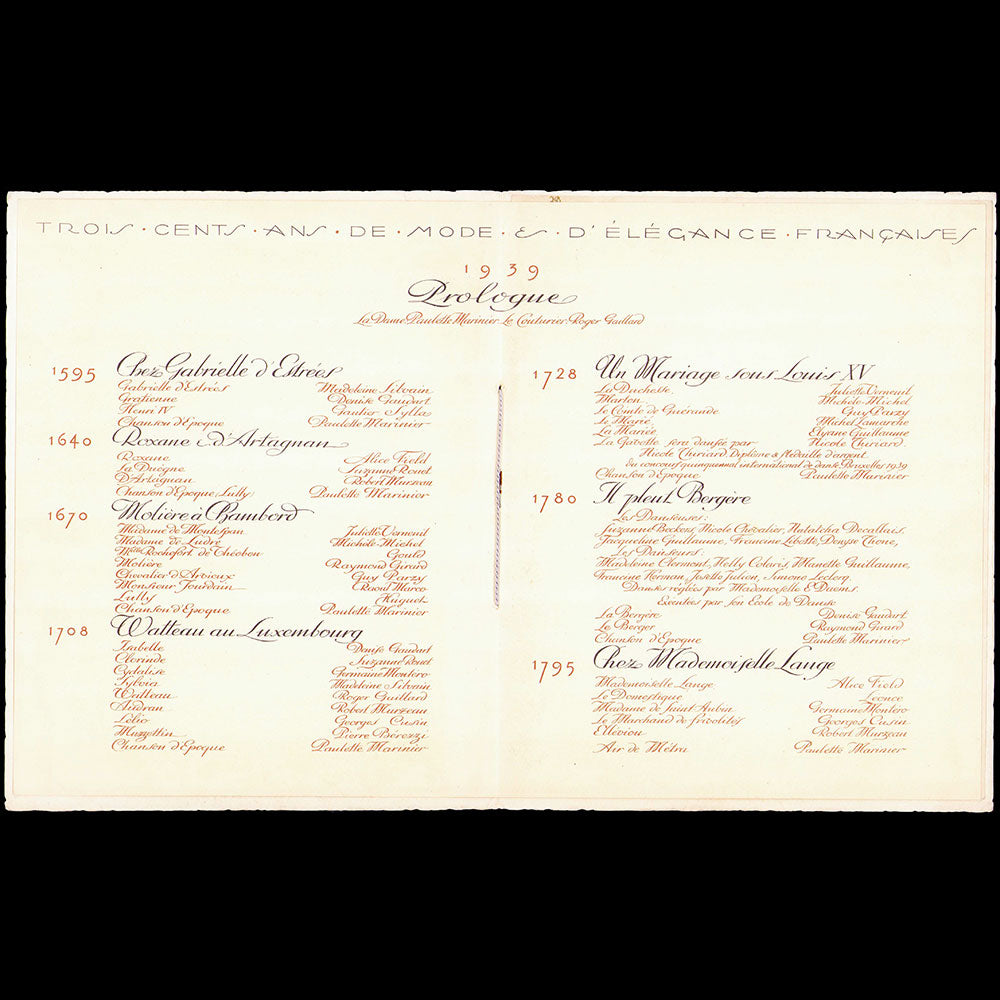 TROIS · CENTS · ANS · DE · MODE · & · D'ÉLÉGANCE · FRANÇAISES
1939
Prologue
La Dame Paulette Marinier Le Couturier Roger Gaillard
1595 Chez Gabrielle d'Estrées
Gabrielle d'Estrées Madeleine Silvain
Gratienne Denise Gaudart
Henri IV Gautier Sylla
Chanson d'Epoque Paulette Marinier
1640 Roxane & d'Artagnan
Roxane Alice Field
La Duègne Suzanne Rouet
D'Artagnan Robert Murzeau
Chanson d'Epoque, Lully Paulette Marinier
1670 Molière à Chambord
Madame de Montespan Juliette Verneuil
Madame de Ludre Michèle-Michel
Melle Rochefort de Théobon Gould
Molière Raymond Girard
Chevalier d'Arvieux Guy Parzy
Monsieur Jourdain Raoul Marco
Lully Huguet
Chanson d'Epoque Paulette Marinier
1708 Watteau au Luxembourg
Isabelle Denise Gaudart
Clorinde Suzanne Rouet
Cydalise Germaine Montero
Sylvia Madeleine Silvain
Watteau Roger Gaillard
Audran Robert Murzeau
Lélio Georges Cusin
Mezzetin Pierre Bérezzi
Chanson d'Epoque Paulette Marinier
1728 Un Mariage sous Louis XV
La Duchesse Juliette Verneuil
Marton Michèle-Michel
Le Comte de Guérande Guy Parzy
Le Marié Michel Lamarche
La Mariée Elyane Guillaume
La Gavotte sera dansée par Nicole Thiriard.
Nicole Thiriard Diplôme & Médaille d'argent
du concours quinquennal international de danse Bruxelles 1939
Chanson d'Epoque Paulette Marinier
1780 Il pleut Bergère
Les Danseuses:
Suzanne Beckers, Nicole Chevalier, Natatcha Decallais,
Jacqueline Guillaume, Francine Libotte, Denyse Thone,
Les Danseurs:
Madeleine Clermont, Nelly Colaris, Manette Guillaume,
Francine Herman, Josette Julien, Simone Leclerq.
Danses réglées par Mademoiselle E. Daems.
Exécutées par son Ecole de Danse
La Bergère Denise Gaudart
Le Berger Raymond Girard
Chanson d'Epoque Paulette Marinier
1795 Chez Mademoiselle Lange
Mademoiselle Lange Alice Field
Le Domestique Léonce
Madame de Saint Aubin Germaine Montero
Le Marchand de frivolités Georges Cusin
Elleviou Robert Murzeau
Air de Métra Paulette Marinier